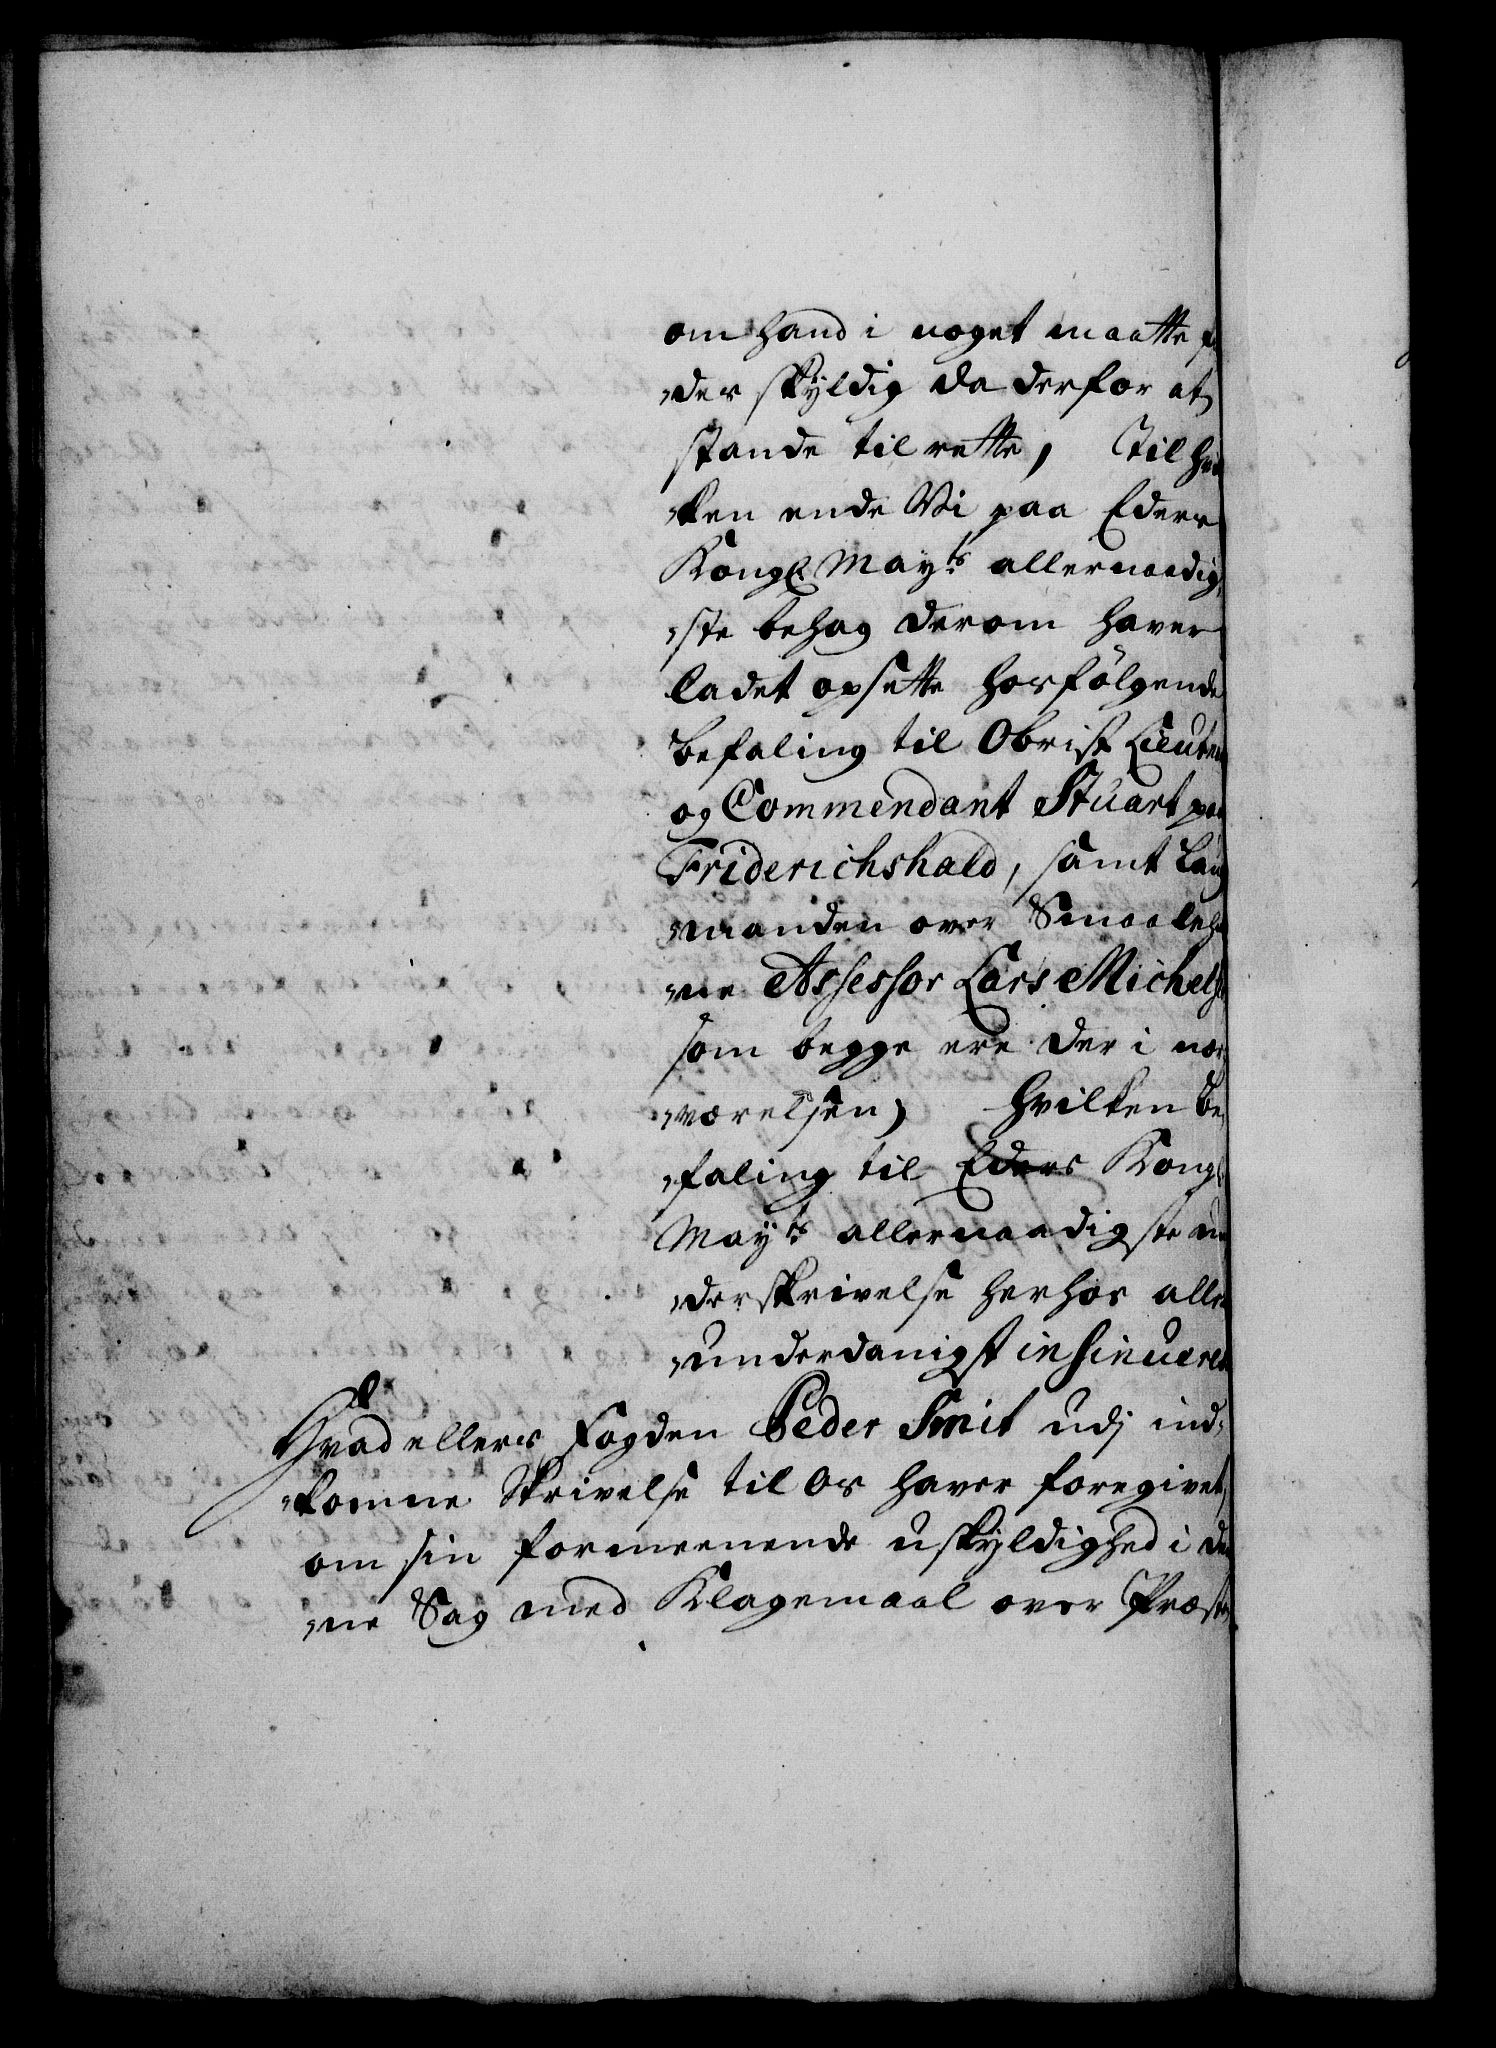 om hand i noget maatte
der skyldig da derfor at
stande til rette, Til hvil
ken ende Vi paa Eders
Kongl. May.ts allernaadig,
ste behag derom haver
ladet opsette hosfölgende
befaling til Obrist Lieuten
og Commendant Stuart paa
Friderichshald, samt Laug
manden over Smaalehe
ne Assessor Lars Michels
som begge ere der i nær
værelsen, hvilken be,
faling til Eders Kongl
May.ts allernaadigste un
derskrivelse herhos aller
underdanigst insinueres
Hvad ellers Fogden Peder Smit udj ind,
komne Skrivelse til Os haver foregivet,
om sin formeenende uskyldighed i den
ne Sag med Klagemaal over Præsten